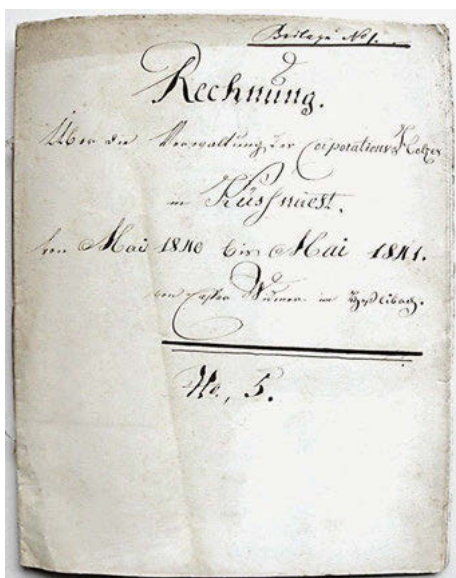 Beilage No 1.
Rechnung.
Über die Verwaltung der Corporations Holzer
in Küssnacht,
von Mai 1840 bis Mai 1841.
von
No, 5.